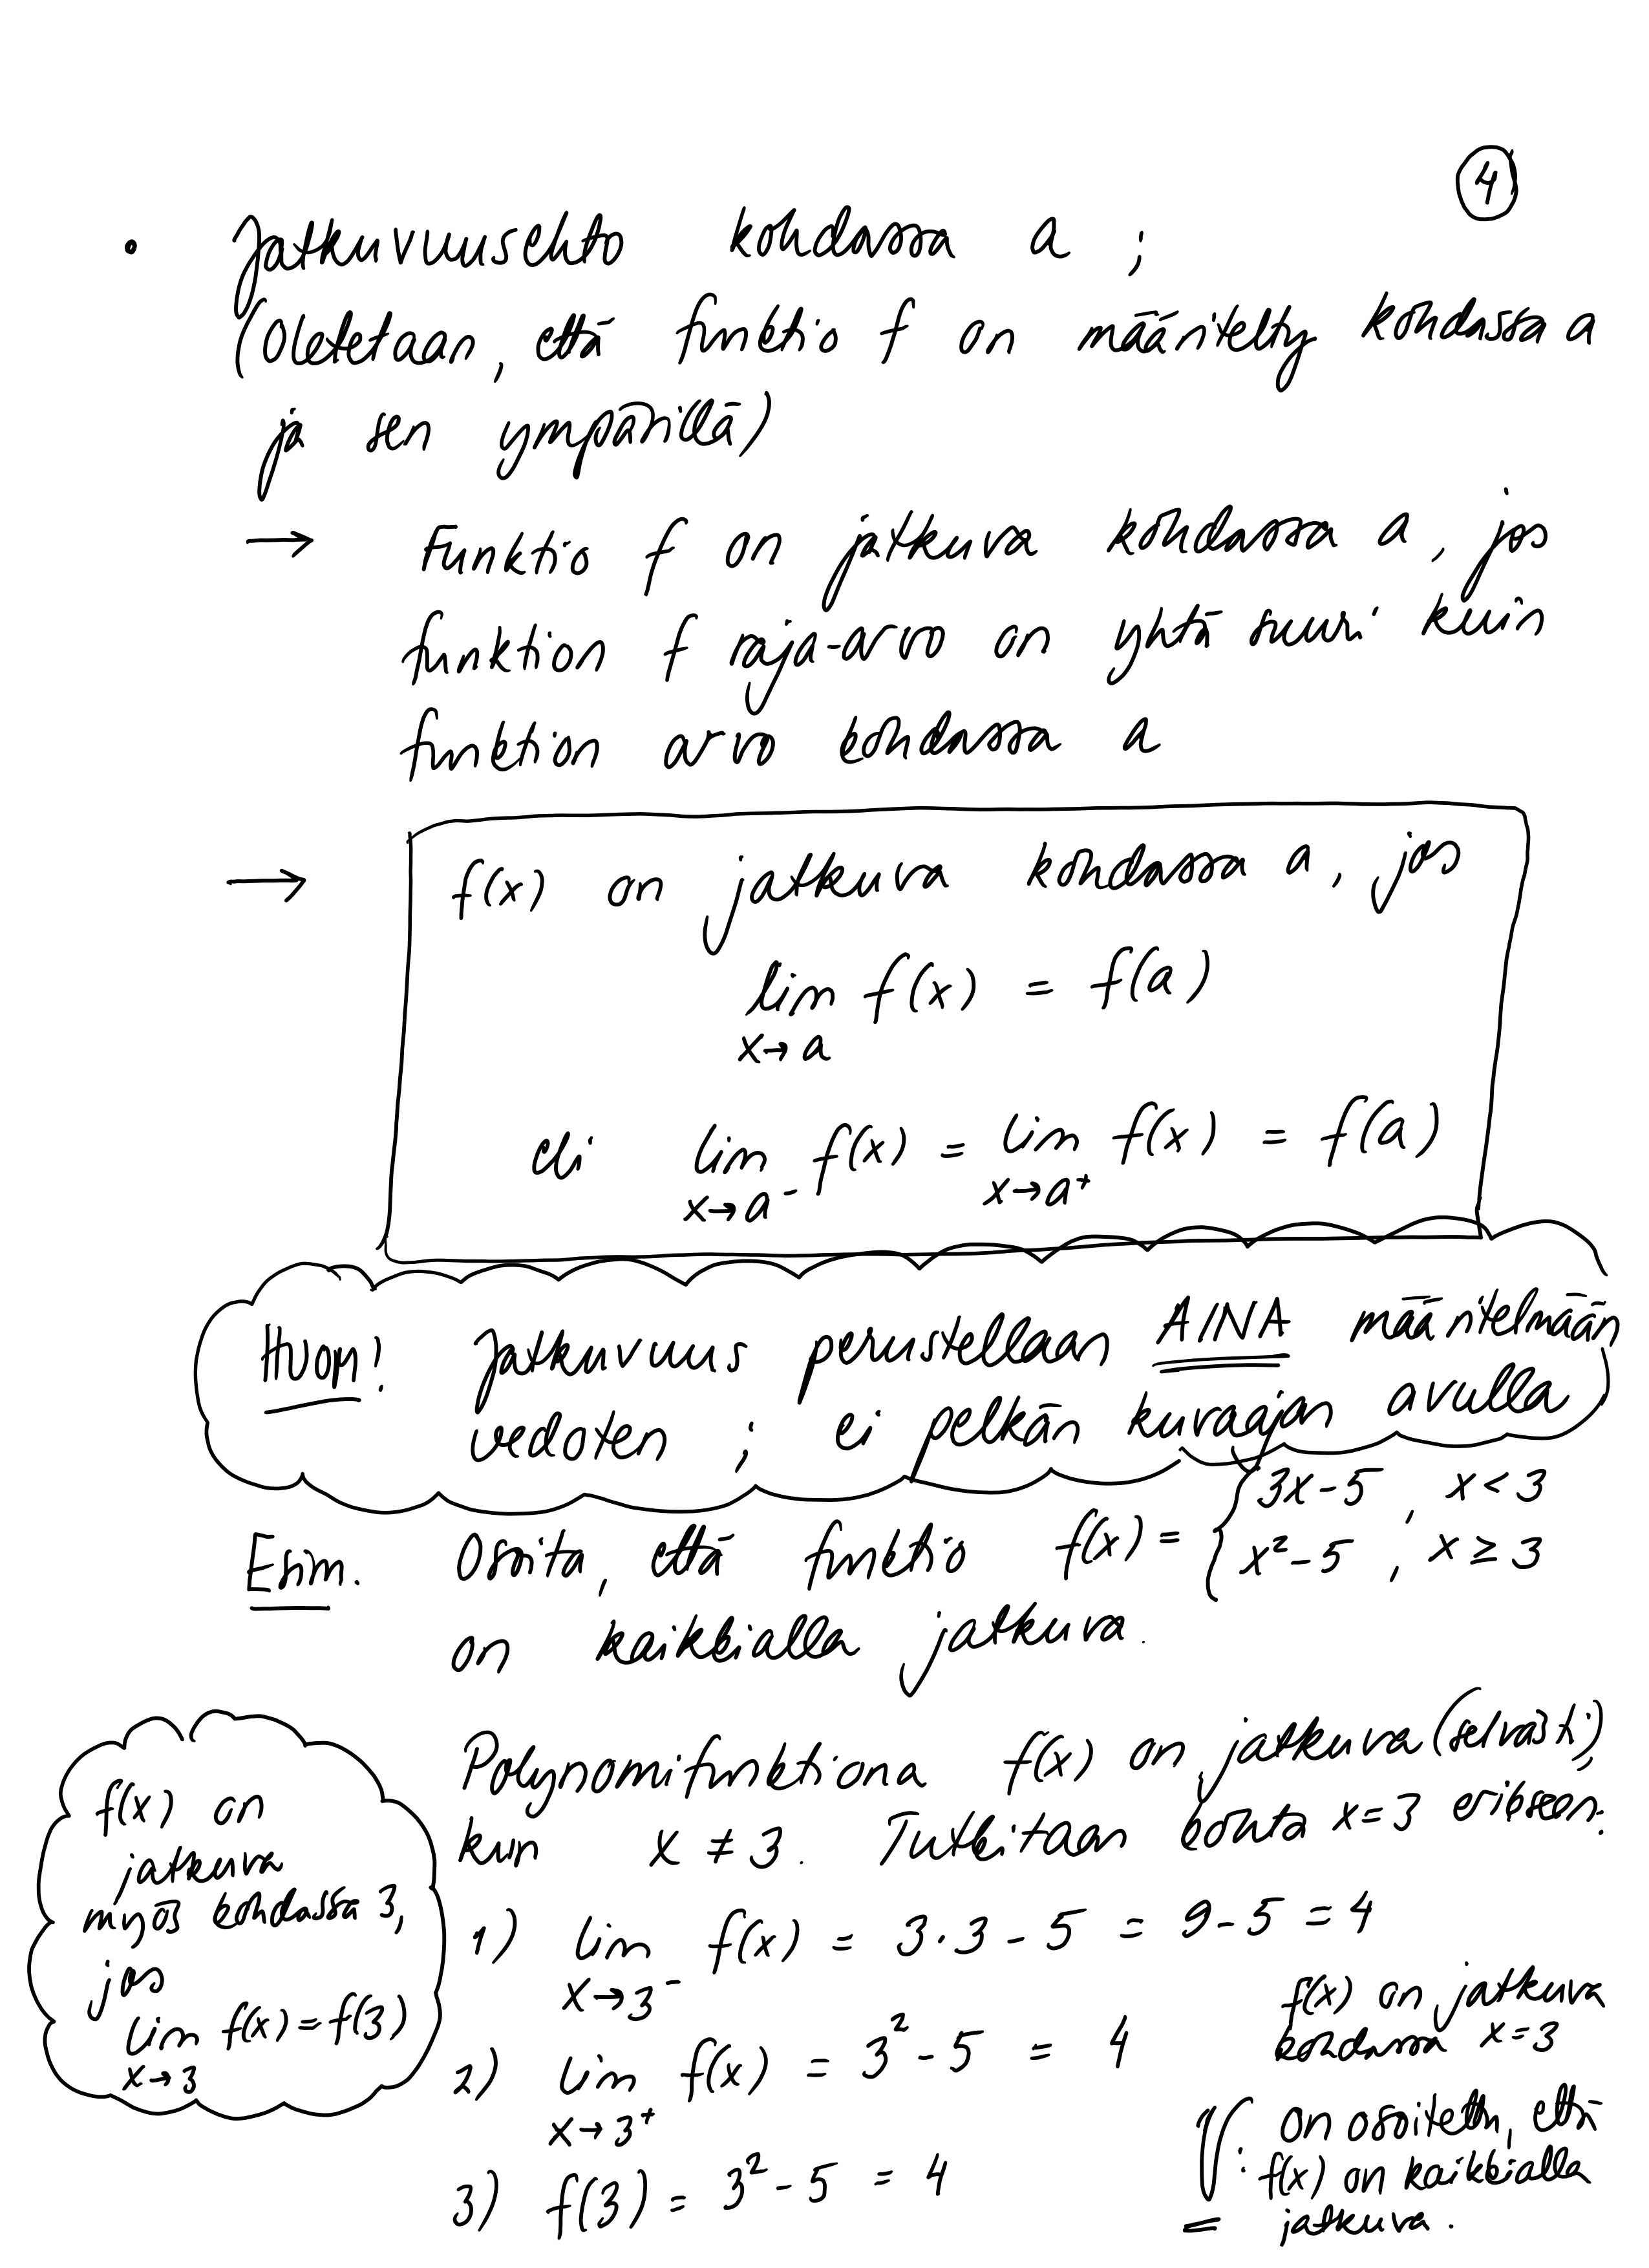 4
• Jatkuvuusehto kohdassa a ;
(Oletetaan, että funktio f on määritelty kohdassa a
ja sen ympärillä)
→ Funktio f on jatkuva kohdassa a, jos
funktion f raja-arvo on yhtä suuri kuin
funktion arvo kohdassa a
→ f(x) on jatkuva kohdassa a, jos
lim f(x) = f(a)
x→a
eli lim f(x) = lim f(x) = f(a)
x→a⁻ x→a⁺
HUOM! Jatkuvuus perustellaan AINA määritelmään
vedoten ; ei pelkän kuvaajan avulla
Esim. Osoita, että funktio f(x) = { 3x-5 , x < 3
x²-5 , x ≥ 3
on kaikkialla jatkuva.
Polynomifunktiona f(x) on jatkuva (selvästi),
kun x ≠ 3. Tutkitaan kohta x=3 erikseen:
f(x) on
jatkuva
myös kohdassa 3,
jos
lim f(x) = f(3)
x→3
1) lim f(x) = 3·3 - 5 = 9-5 = 4
x→3⁻
2) lim f(x) = 3²-5 = 4
x→3⁺
3) f(3) = 3²-5 = 4
f(x) on jatkuva
kohdassa x=3
V: on osoitettu, että
f(x) on kaikkialla
jatkuva.